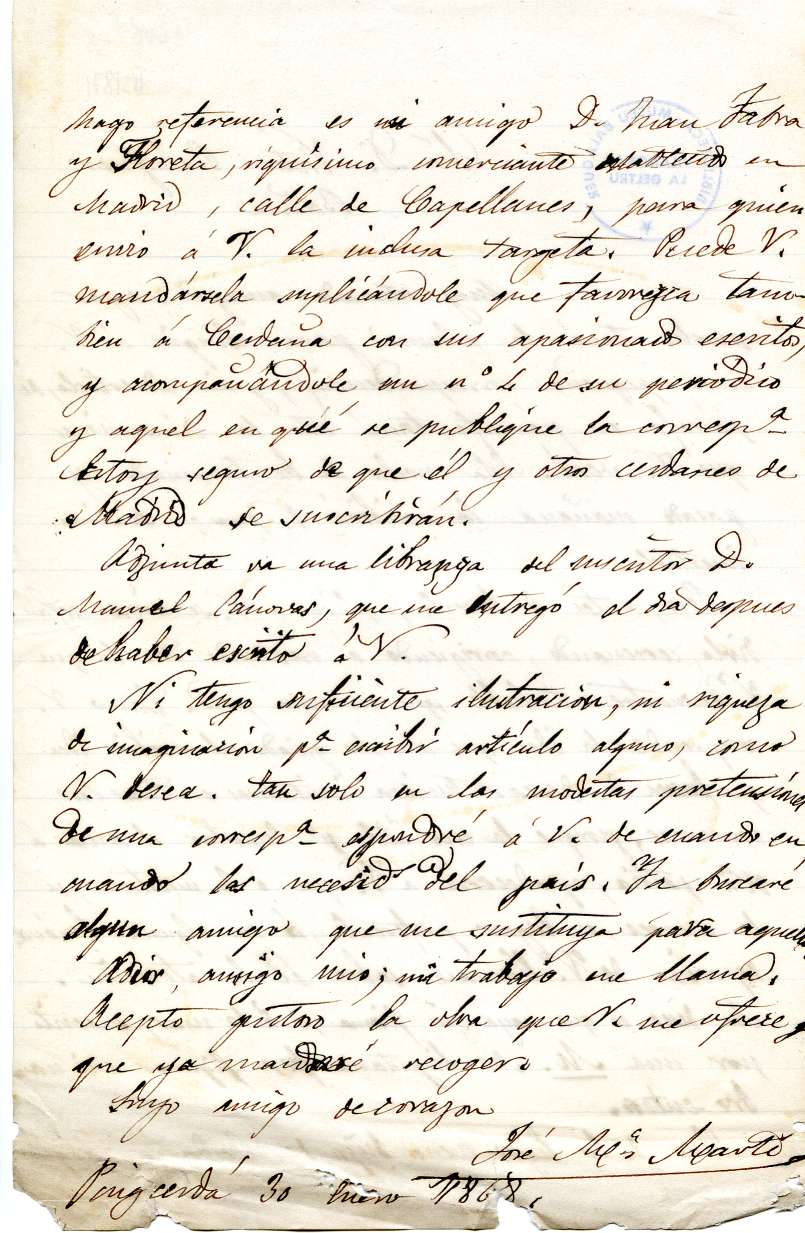 hago referencia es mi amigo D. Juan Fabra
y Floreta, riquísimo comerciante establecido en
Madrid, calle de Capellanes, para quien
envio á V. la inclusa targeta. Puede V.
mandársela suplicándole que favorezca tam-
bien á Cerdaña con sus apasionados escritos,
y acompañándole un nº 4 de su periódico
y aquel en qué se publique la correspª
Estoy seguro de que él y otros cerdanes de
Madrid se suscribirán.
Adjunta va una libranza del suscritor D.
Manuel Cánovas, que me entregó el dia despues
de haber escrito á V.
Ni tengo suficiente ilustracion, ni riqueza
de imaginacion pª escribir artículo alguno, como
V. desea. tan solo en las modestas pretensiones
de una correspª espondré á V. de cuando en
cuando las necesidˢ del país. Ya buscaré
algun amigo que me sustituya para aquello
Adios, amigo mio; mi trabajo me llama.
Acepto gustoso la obra que V. me ofrece y
que ya mandaré recoger.
Suyo amigo de corazon
José Mª Martí
Puigcerdá 30 Enero 1868.